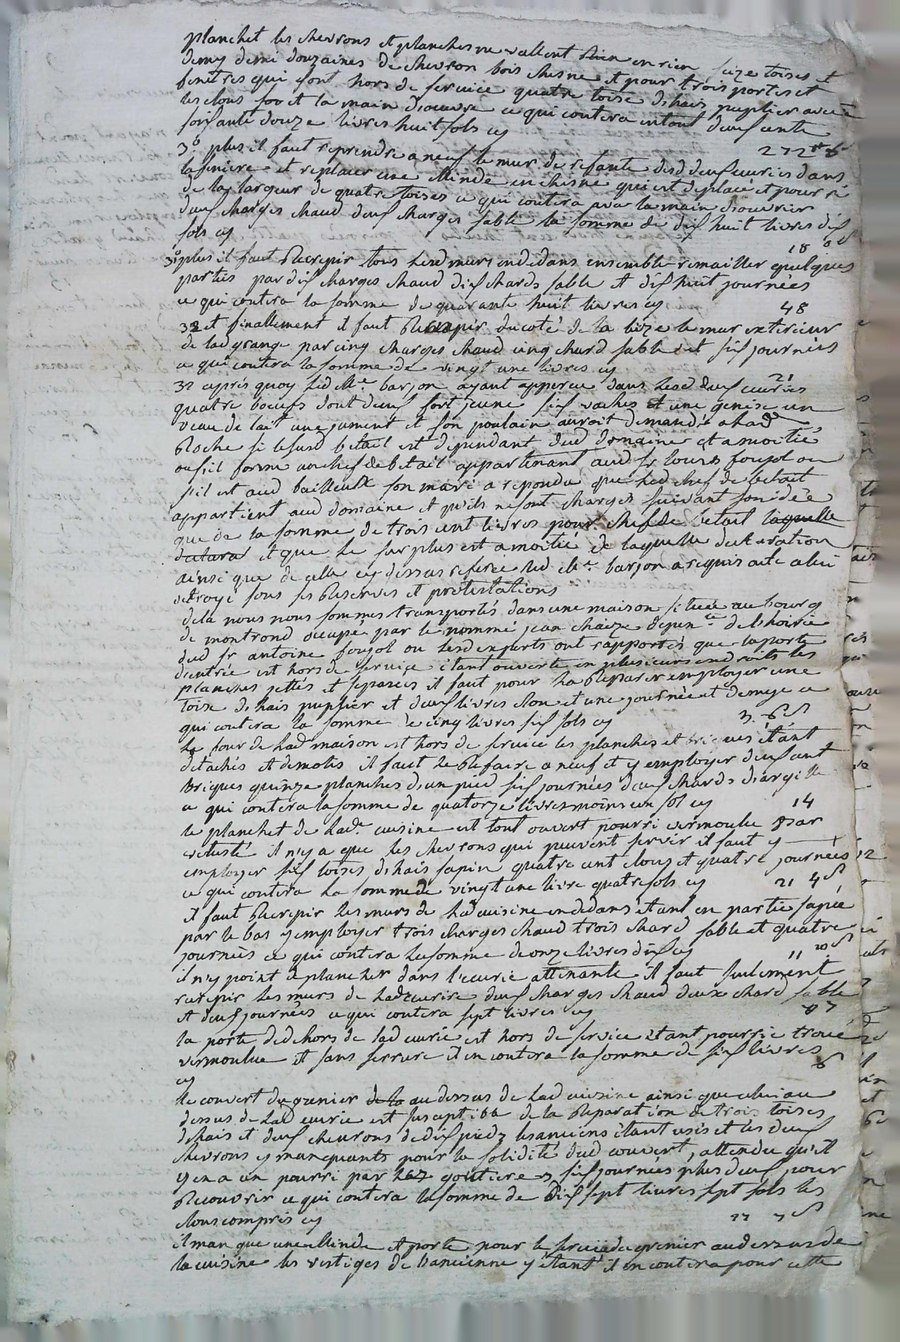 planchet les chevrons et planches ne vallent Rien en rien seize toises et
demy demi douzaines de chevron bois chesne et pour trois portes et
fenêtres qui sont hors de service quatre toise d'hais puplier avec
les clous foo et la main d'oeuvre ce qui coutera in tout deux cents
soisante douze livres huit sols cy
272 # 8 s
3° plus il faut reprendre a neuf le mur de refante desd deux ecuries dans
la finiere et replacer une Minde en chesne qui est deplacé et pour
de lag largeur de quatre toises ce qui coutera avec la main d'ouvrier
deux charges chaud deux charges sable la somme de dix huit livres dix
sols cy
18 6 s
3° plus il faut Recrepir tous lesd murs en dedans ensemble remailler quelques
parties par dix charges chaud dix chards sable et dix huit journées
ce qui contera la somme de quarante huit livres cy
48
32 et finallement il faut Recrepir du coté de la bize le mur exterieur
de lad grange par cinq charges chaud cinq chard sable et six journées
ce qui contera la somme de vingt une livres cy
21
32 après quoy led Me barjon ayant apperçu dans lesd deux ecuries
quatre boeufs dont deux fort jeune six vaches et une genisse un
veau de lait une jument et son poulain auroit demandé a lad
Roche si le surd betail est dependant dud Domaine et a moitié
ou s'il forme un chef de betail appartenant aud Sr louis foujol ou
s'il est aud bailleult son mari a repondu que led chef de betail
appartient aud domaine et qu'ils ne sont charges suivant son idée
que de la somme de trois cent livres pour chef de betail laquelle
declara et que le surplus est a moitié de laquelle declaration
ainsi que de celle cy dessus referée led Me barjon a requis acte a lui
octroyé sous ses Reserves et protestations
dela nous nous sommes transportés dans une maison située au bourg
de montrond occupe par le nommé jean chaize depen.ce de l'hoirie
dud sr antoine foujol ou lesd experts ont rapportés que la porte
d'entrée est hors de service étant ouverte en plusieurs endroits les
planches jettés et separées il faut pour la Reparer employer une
toise d'hais puplier et deux livres clou et une journée et demye ce
qui coutera la somme de cinq livres six sols cy
5 6 s
Le four de lad maison est hors de service les planches et briques étant
detachés et demolis il faut le Refaire a neuf et y employer deux cent
briques quinze planches d'un pied six journées deux chards d'argille
ce qui contera la somme de quatorze livres moins un sol cy
14
le planchet de lad. cuisine est tout ouvert pourri vermoulu par
vetusté il n'y a que les chevrons qui peuvent servir il faut y
employer six toises d'hais sapin quatre cent clous et quatre journées
ce qui contera la somme de vingt une livre quatre sols cy
21 4 s
il faut Recrepir les murs de lad cuisine en dedans étant en partie sapée
par le bas y employer trois charges chaud trois chard sable et quatre
journées ce qui contera la somme de onze livres dix cy
11 10 s
il n'y point de plancher dans l'ecurie attenante il faut seulement
recrepir les murs de lad ecurie deux charges chaud deux chard sable
et deux journées ce qui contera sept livres cy
7
la porte de dehors de lad ecurie est hors de service etant pourrie trouée
vermoulue et sans serrure il en coutera la somme de six livres
cy
6
Le couvert du grenier de la au dessus de lad cuisine ainsi que celui au
dessus de lad ecurie est susceptible de la Reparation de trois toises
dehais et deux chevrons de dix pieds les anciens étant usés et les deux
chevrons y manquants pour la solidité dud couvert, attendu qu'il
y en a un pourri par les goutieres six journées plus deux pour
Recouvrir ce qui contera la somme de Dix sept livres sept sols les
clous compris cy
17 7 s
il manque une Minde et porte pour le service du grenier au dessus de
la cuisine les vestiges de l'ancienne y étant il en coutera pour cette